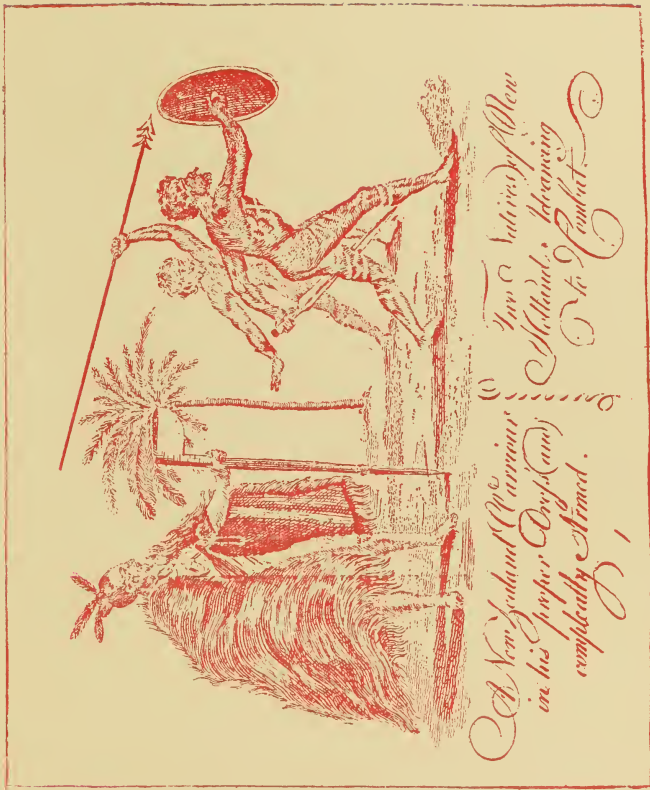 A New Zealand Warriour
in his proper Dress and
compleatly Armed.
Two Natives of New
Holland, Advancing
to Combat.